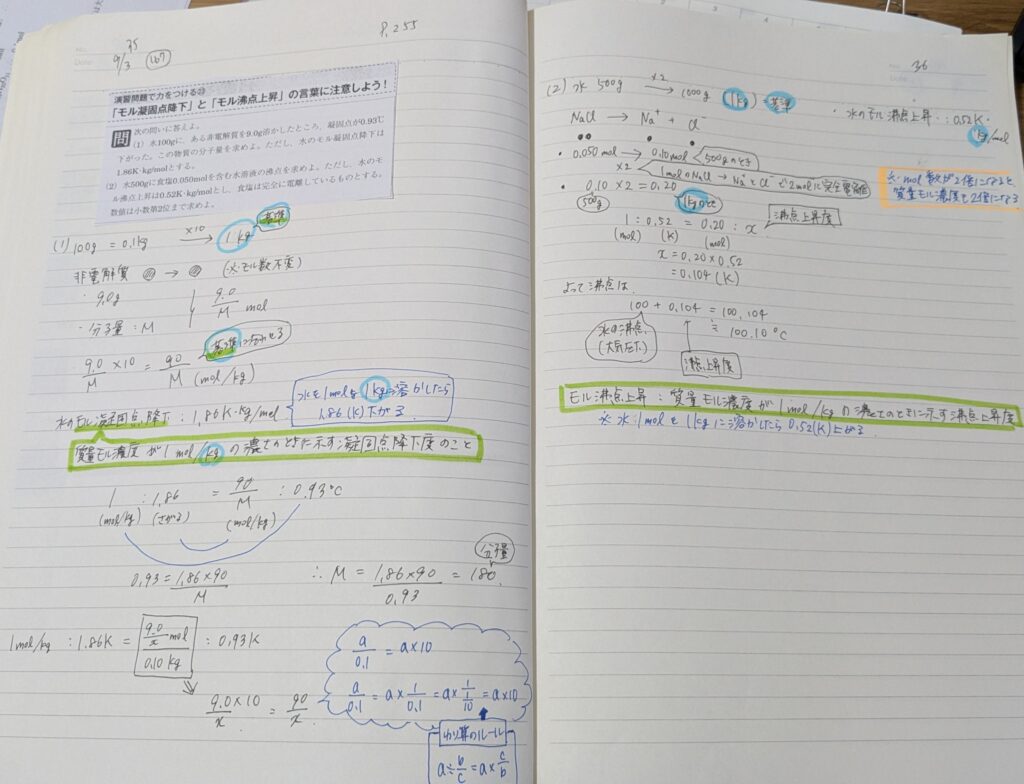 P.255
No.
Date
35
9/3
167
演習問題で力をつける㉓
「モル凝固点降下」と「モル沸点上昇」の言葉に注意しよう!
問 次の問いに答えよ。
(1) 水100gに、ある非電解質を9.0g溶かしたところ、凝固点が0.93℃
下がった。この物質の分子量を求めよ。ただし、水のモル凝固点降下は
1.86K·kg/molとする。
(2) 水500gに食塩0.050molを含む水溶液の沸点を求めよ。ただし、水のモ
ル沸点上昇は0.52K·kg/molとし、食塩は完全に電離しているものとする。
数値は小数第2位まで求めよ。
(1) 100g = 0.1kg ×10 → 1kg 基準
非電解質 → (※モル数不変)
・9.0g 9.0/M mol
・分子量:M
9.0/M × 10 = 90/M (mol/kg) 基準に合わせる
水のモル凝固点降下:1.86K·kg/mol
水を1molを1kgに溶かしたら
1.86(K)下がる
質量モル濃度が1mol/kgの濃さのときに示す凝固点降下度のこと
1 : 1.86 = 90/M : 0.93℃
(mol/kg) (さがる) (mol/kg)
0.93 = 1.86×90/M ∴ M = 1.86×90/0.93 = 180 分子量
1mol/kg : 1.86K = 9.0/x mol/0.10kg : 0.93K
9.0×10/x = 90/x
a/0.1 = a×10
a/0.1 = a×1/0.1 = a×1/1/10 = a×10
わり算のルール
a÷b/c = a×c/b
36
Date
(2) 水 500g ×2 → 1000g (1kg) = 基準
・水のモル沸点上昇:0.52K·kg/mol
NaCl → Na⁺ + Cl⁻
・0.050mol → 0.10mol 500gのとき
×2 1molのNaCl → Na⁺とCl⁻で2molに完全電離
・0.10 × 2 = 0.20
500g 1kgのとき
※mol数が2倍になると
質量モル濃度も2倍になる
1 : 0.52 = 0.20 : x 沸点上昇度
(mol) (K) (mol)
x = 0.20×0.52
= 0.104 (K)
よって沸点は、
100 + 0.104 = 100.104
≒ 100.10℃
水の沸点
(大気圧下)
沸点上昇度
モル沸点上昇:質量モル濃度が1mol/kgの濃さのときに示す沸点上昇度
※水:1molを1kgに溶かしたら0.52(K)上がる